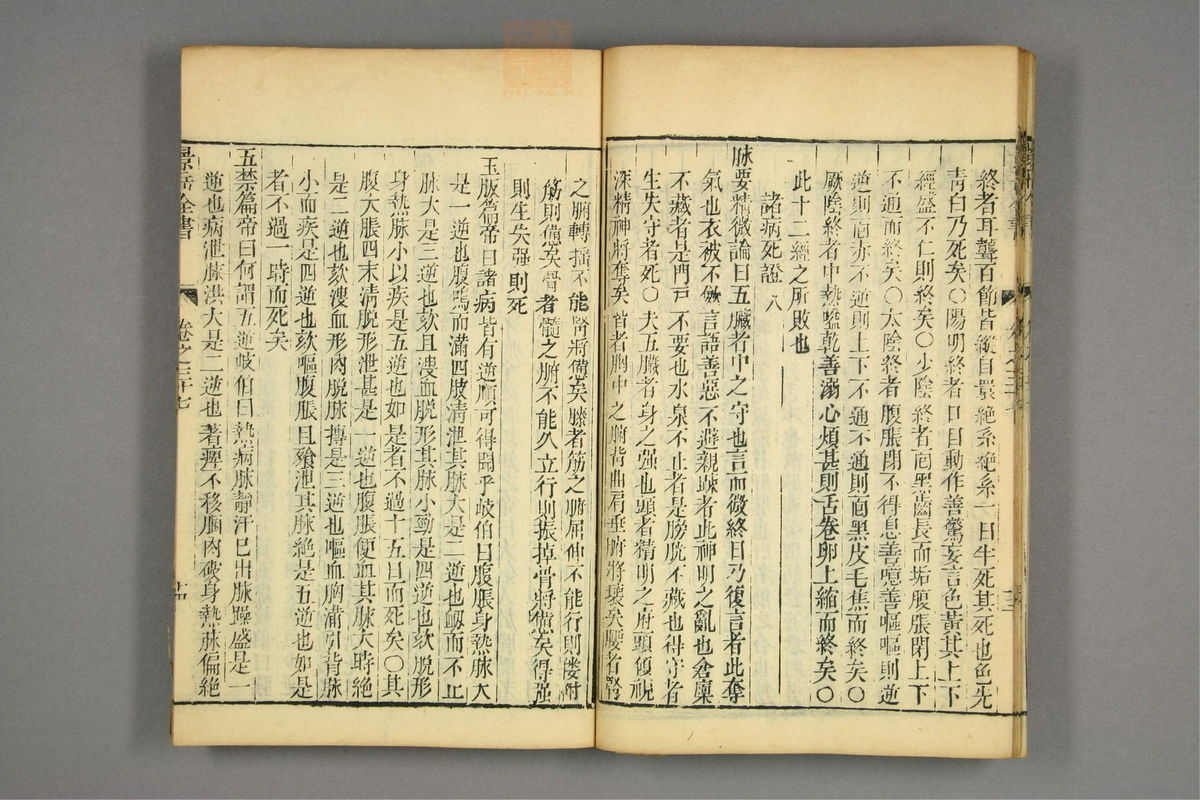 終者耳聾百節皆縱目睘絶系絶系一日半死其死也色先
青白乃死矣○陽明終者口目動作善驚妄言色黃其上下
經盛不仁則終矣○少陰終者面黑齒長而垢腹脹閉上下
不通而終矣○太陰終者腹脹閉不得息善噫善嘔嘔則逆
逆則面赤不逆則上下不通不通則面黑皮毛焦而終矣○
厥陰終者中熱嗌乾善溺心煩甚則舌卷卵上縮而終矣○
此十二經之所敗也
諸病死證 八
脉要精微論曰五臟者中之守也言而微終日乃復言者此奪
氣也衣被不斂言語善惡不避親疎者此神明之亂也倉廩
不藏者是門戸不要也水泉不止者是膀胱不藏也得守者
生失守者死○夫五臟者身之强也頭者精明之府頭傾視
深精神將奪矣背者胸中之腑背曲肩垂腑將壞矣腰者腎
之腑轉搖不能腎將憊矣膝者筋之腑屈伸不能行則僂附
筋則憊矣骨者髓之腑不能久立行則振掉骨將憊矣得强
則生失强則死
玉版篇帝曰諸病皆有逆順可得聞乎岐伯曰腹脹身熱脉大
是一逆也腹鳴而滿四肢清泄其脉大是二逆也衂而不止
脉大是三逆也欬且溲血脱形其脉小勁是四逆也欬脱形
身熱脉小以疾是五逆也如是者不過十五日而死矣○其
腹大脹四末清脱形泄甚是一逆也腹脹便血其脉大時絶
是二逆也欬溲血形肉脱脉搏是三逆也嘔血胸滿引背脉
小而疾是四逆也欬嘔腹脹且飱泄其脉絶是五逆也如是
者不過一時而死矣
五禁篇帝曰何謂五逆岐伯曰熱病脉靜汗已出脉躁盛是一
逆也病泄脉洪大是二逆也著痺不移䐃肉破身熱脉偏絶
景岳全書
卷之三十七